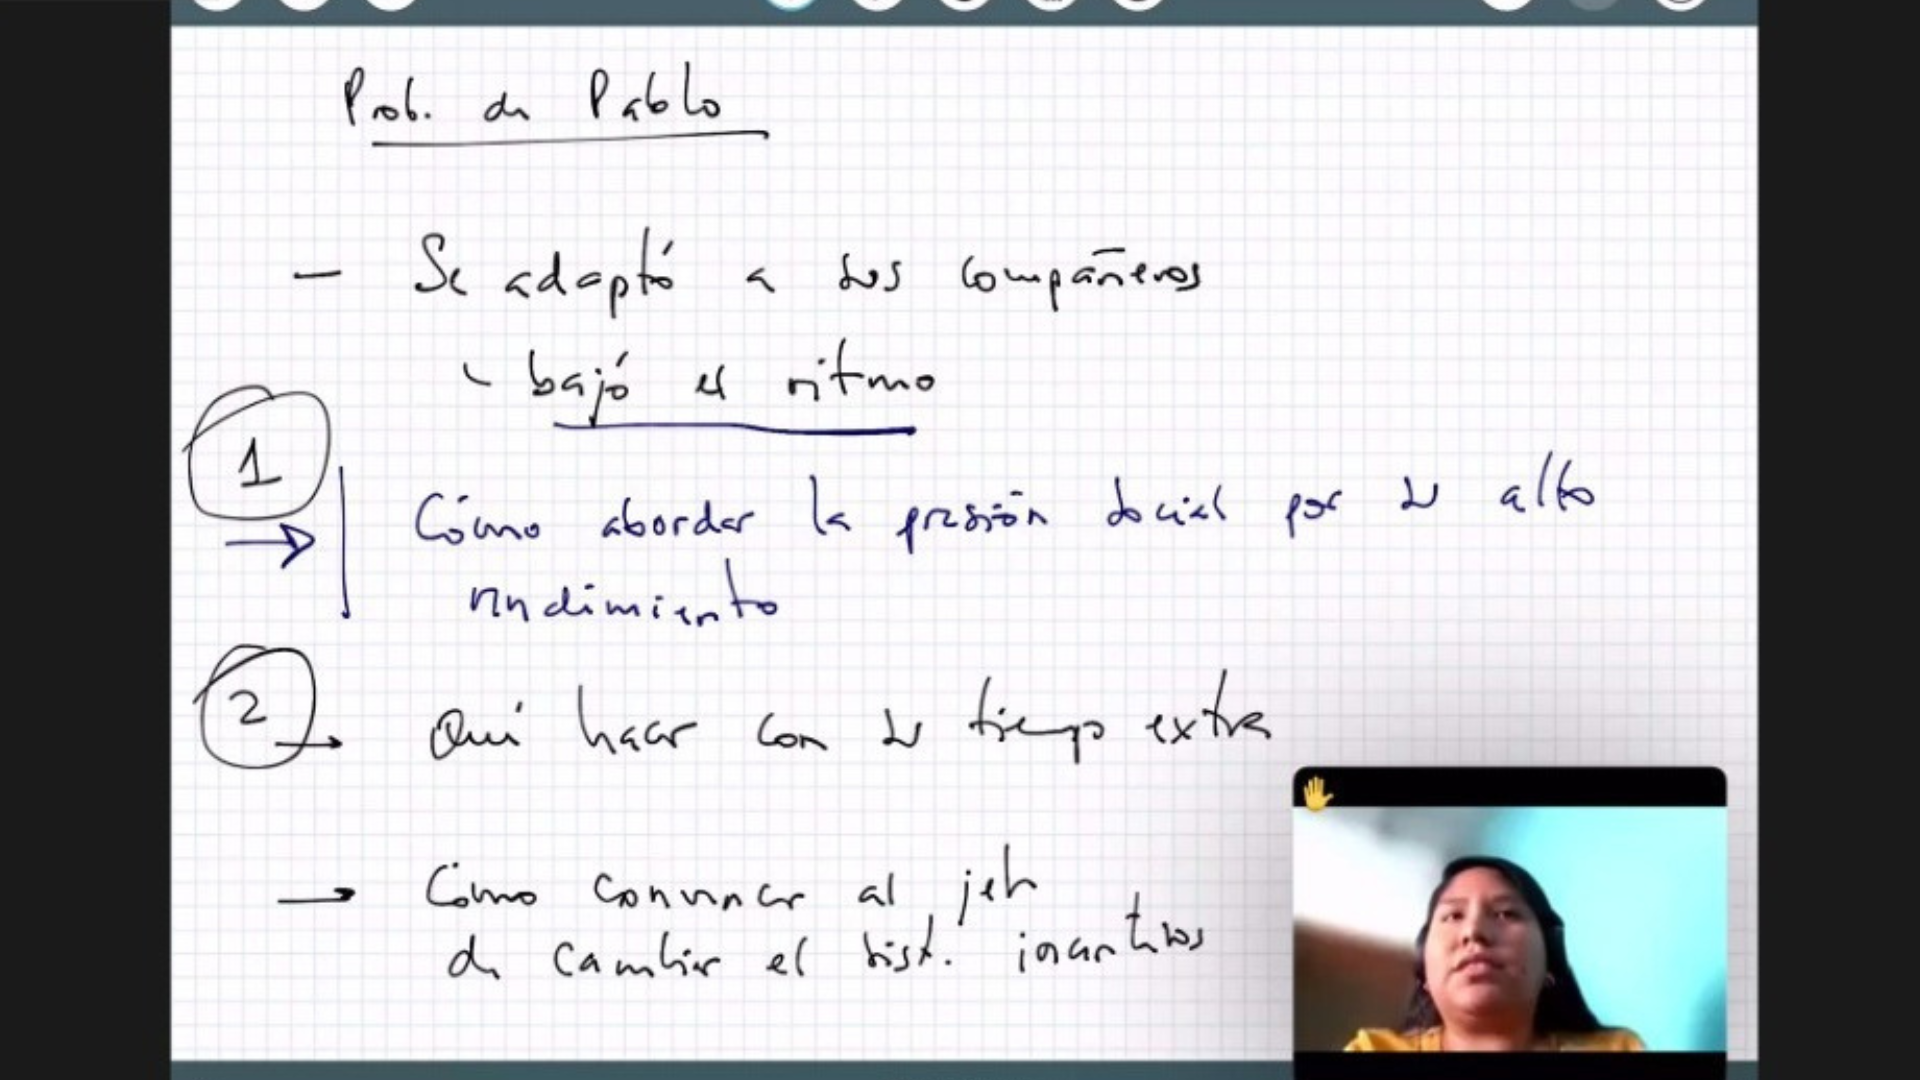 Prob. de Pablo
— Se adaptó a sus compañeros
- bajó el ritmo
1
Cómo abordar la presión social por su alto
rendimiento
2
→ Qué hacer con su tiempo extra
→ Cómo convencer al jefe
de cambiar el sist. incentivos